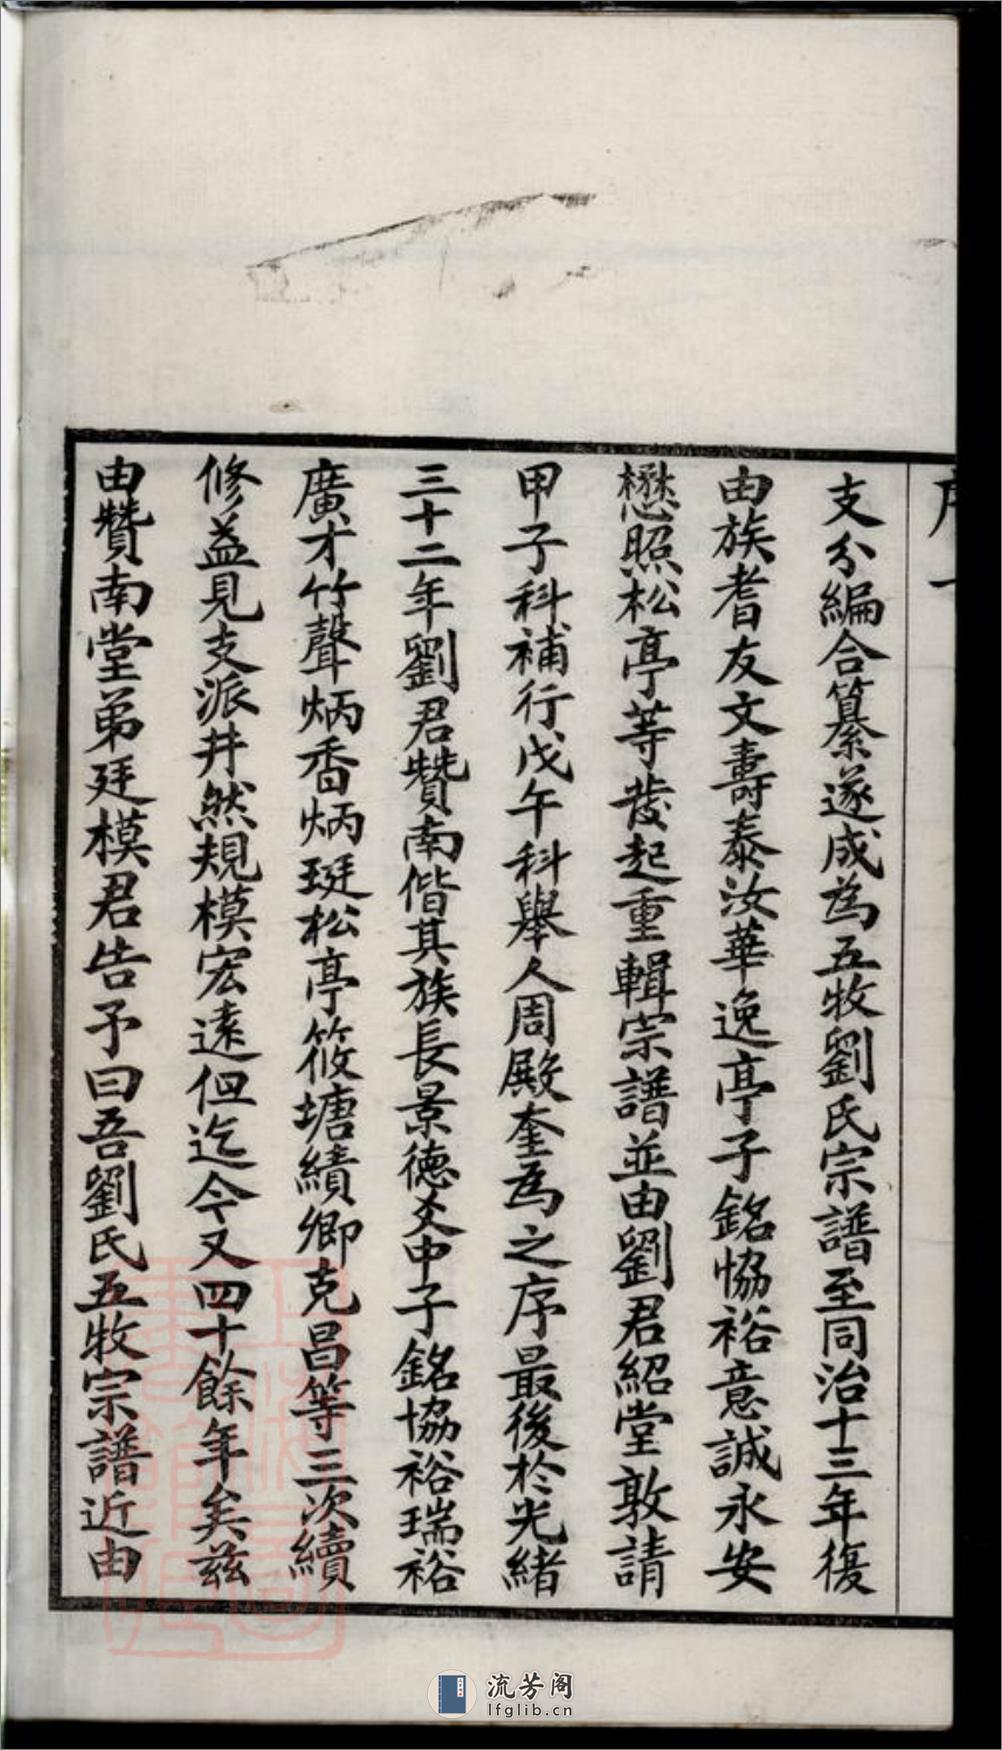 支分編合纂遂成為五牧劉氏宗譜至同治十三年復
由族耆友文壽泰汝華逸亭子銘恊裕意誠永安
懋照松亭等發起重輯宗譜並由劉君紹堂敦請
甲子科補行戊午科舉人周殿奎為之序最後於光緒
三十二年劉君贊南偕其族長景德爻中子銘協裕瑞裕
廣才竹聲炳香炳珽松亭筱塘績卿克昌等三次續
修益見支派井然規模宏遠但迄今又四十餘年矣兹
由贊南堂弟廷模君告予曰吾劉氏五牧宗譜近由
流芳阁
lfglib.cn